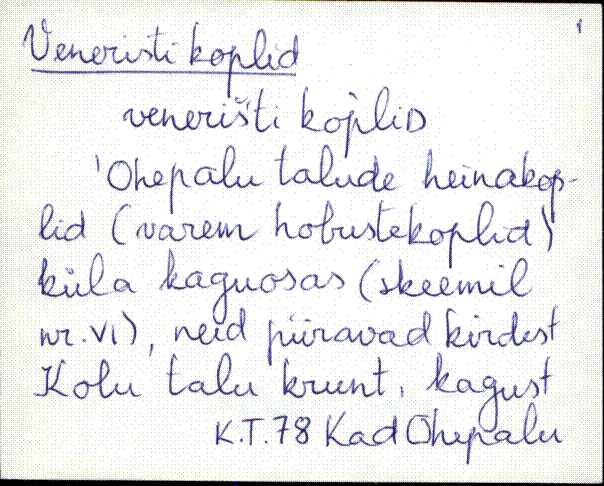 Veneristi koplid
venerišti kop̀liD
'Ohepalu talude heinakop-
lid (varem hobustekoplid)
küla kaguosas (skeemil
nr. VI), neid piiravad kirdest
Kolu talu krunt, kagust
K.T.78 Kad Ohepalu